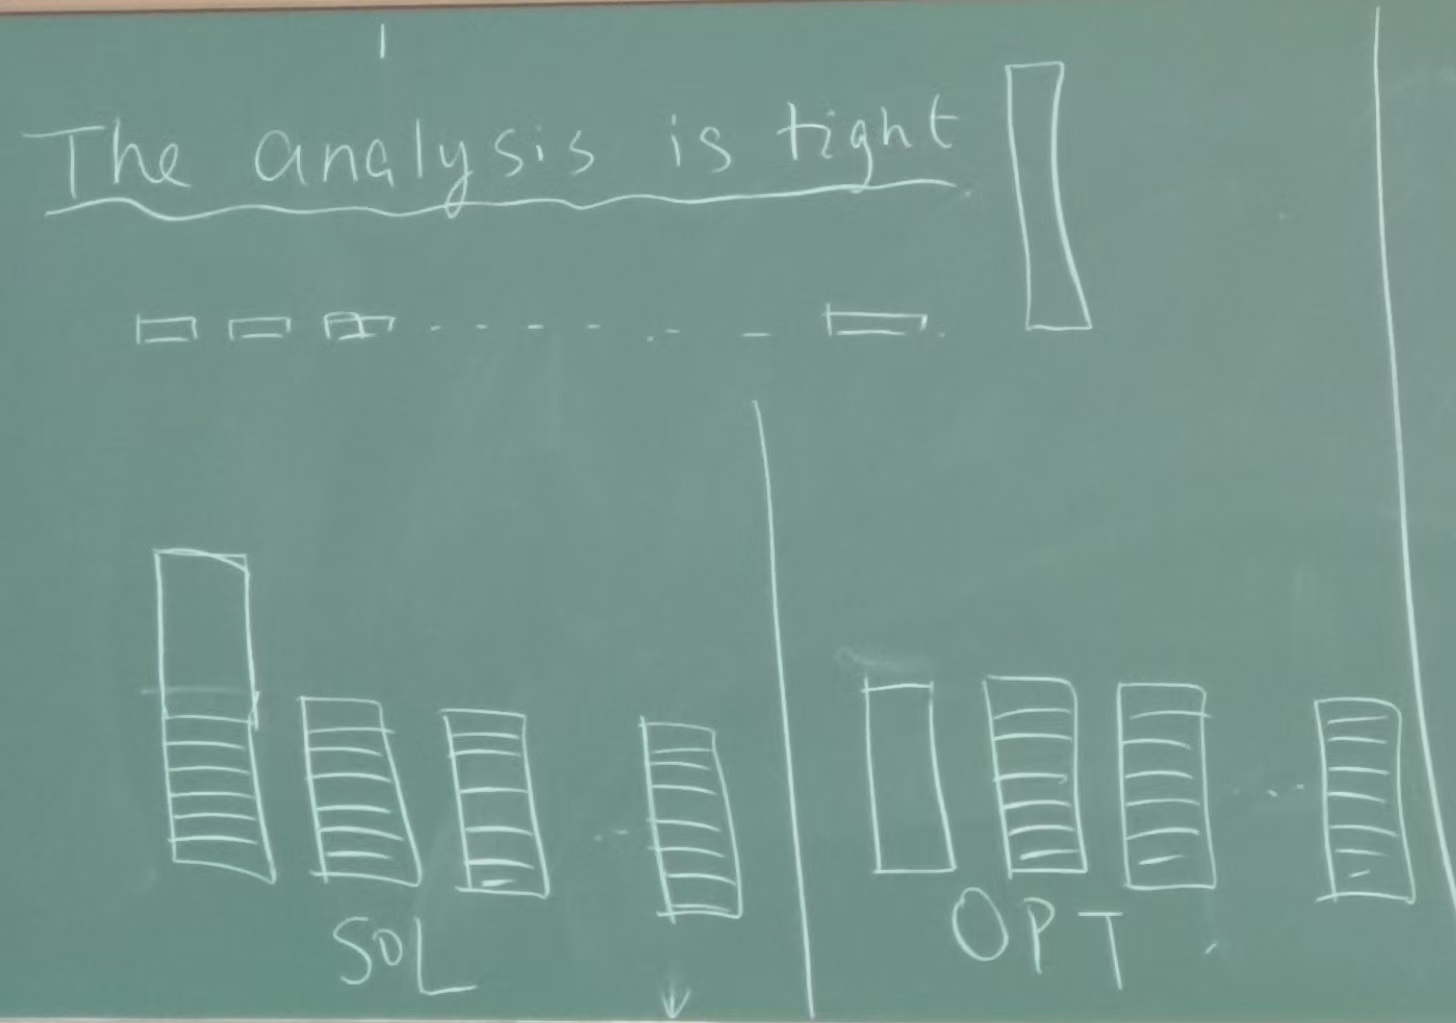 The analysis is tight
SOL
OPT